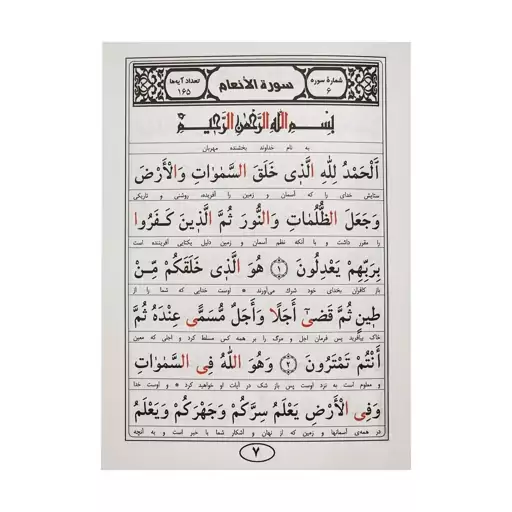 شمارهٔ سوره
۶
سورة الأنعام
تعداد آیه‌ها
۱۶۵
بِسْمِ اللهِ الرَّحْمٰنِ الرَّحِیمِ
به نام خداوند بخشنده مهربان
اَلْحَمْدُ لِلّٰهِ الَّذِی خَلَقَ السَّمٰوَاتِ وَالْأَرْضَ
ستایش خدای را که آسمان و زمین را آفریده، روشنی و تاریکی
وَجَعَلَ الظُّلُمَاتِ وَالنُّورَ ثُمَّ الَّذِینَ کَفَرُوا
را مقرر داشت و با آنکه نظم آسمان و زمین دلیل یکتایی آفریننده است
بِرَبِّهِمْ یَعْدِلُونَ ﴿۱﴾ هُوَ الَّذِی خَلَقَکُمْ مِنْ
باز کافران بخدای خود شرک می‌آورند * اوست خدایی که شما را از
طِینٍ ثُمَّ قَضٰی أَجَلًا وَأَجَلٌ مُسَمًّی عِنْدَهُ ثُمَّ
خاک بیافرید پس فرمان اجل و مرگ را بر همه کس مسلط کرد و اجلی که معین
أَنْتُمْ تَمْتَرُونَ ﴿۲﴾ وَهُوَ اللّٰهُ فِی السَّمٰوَاتِ
و معلوم است به نزد اوست پس باز شک در آیات او خواهید کرد * و اوست خدا
وَفِی الْأَرْضِ یَعْلَمُ سِرَّکُمْ وَجَهْرَکُمْ وَیَعْلَمُ
در همه‌ی آسمانها و زمین که از نهان و آشکار شما با خبر است و به آنچه
۷